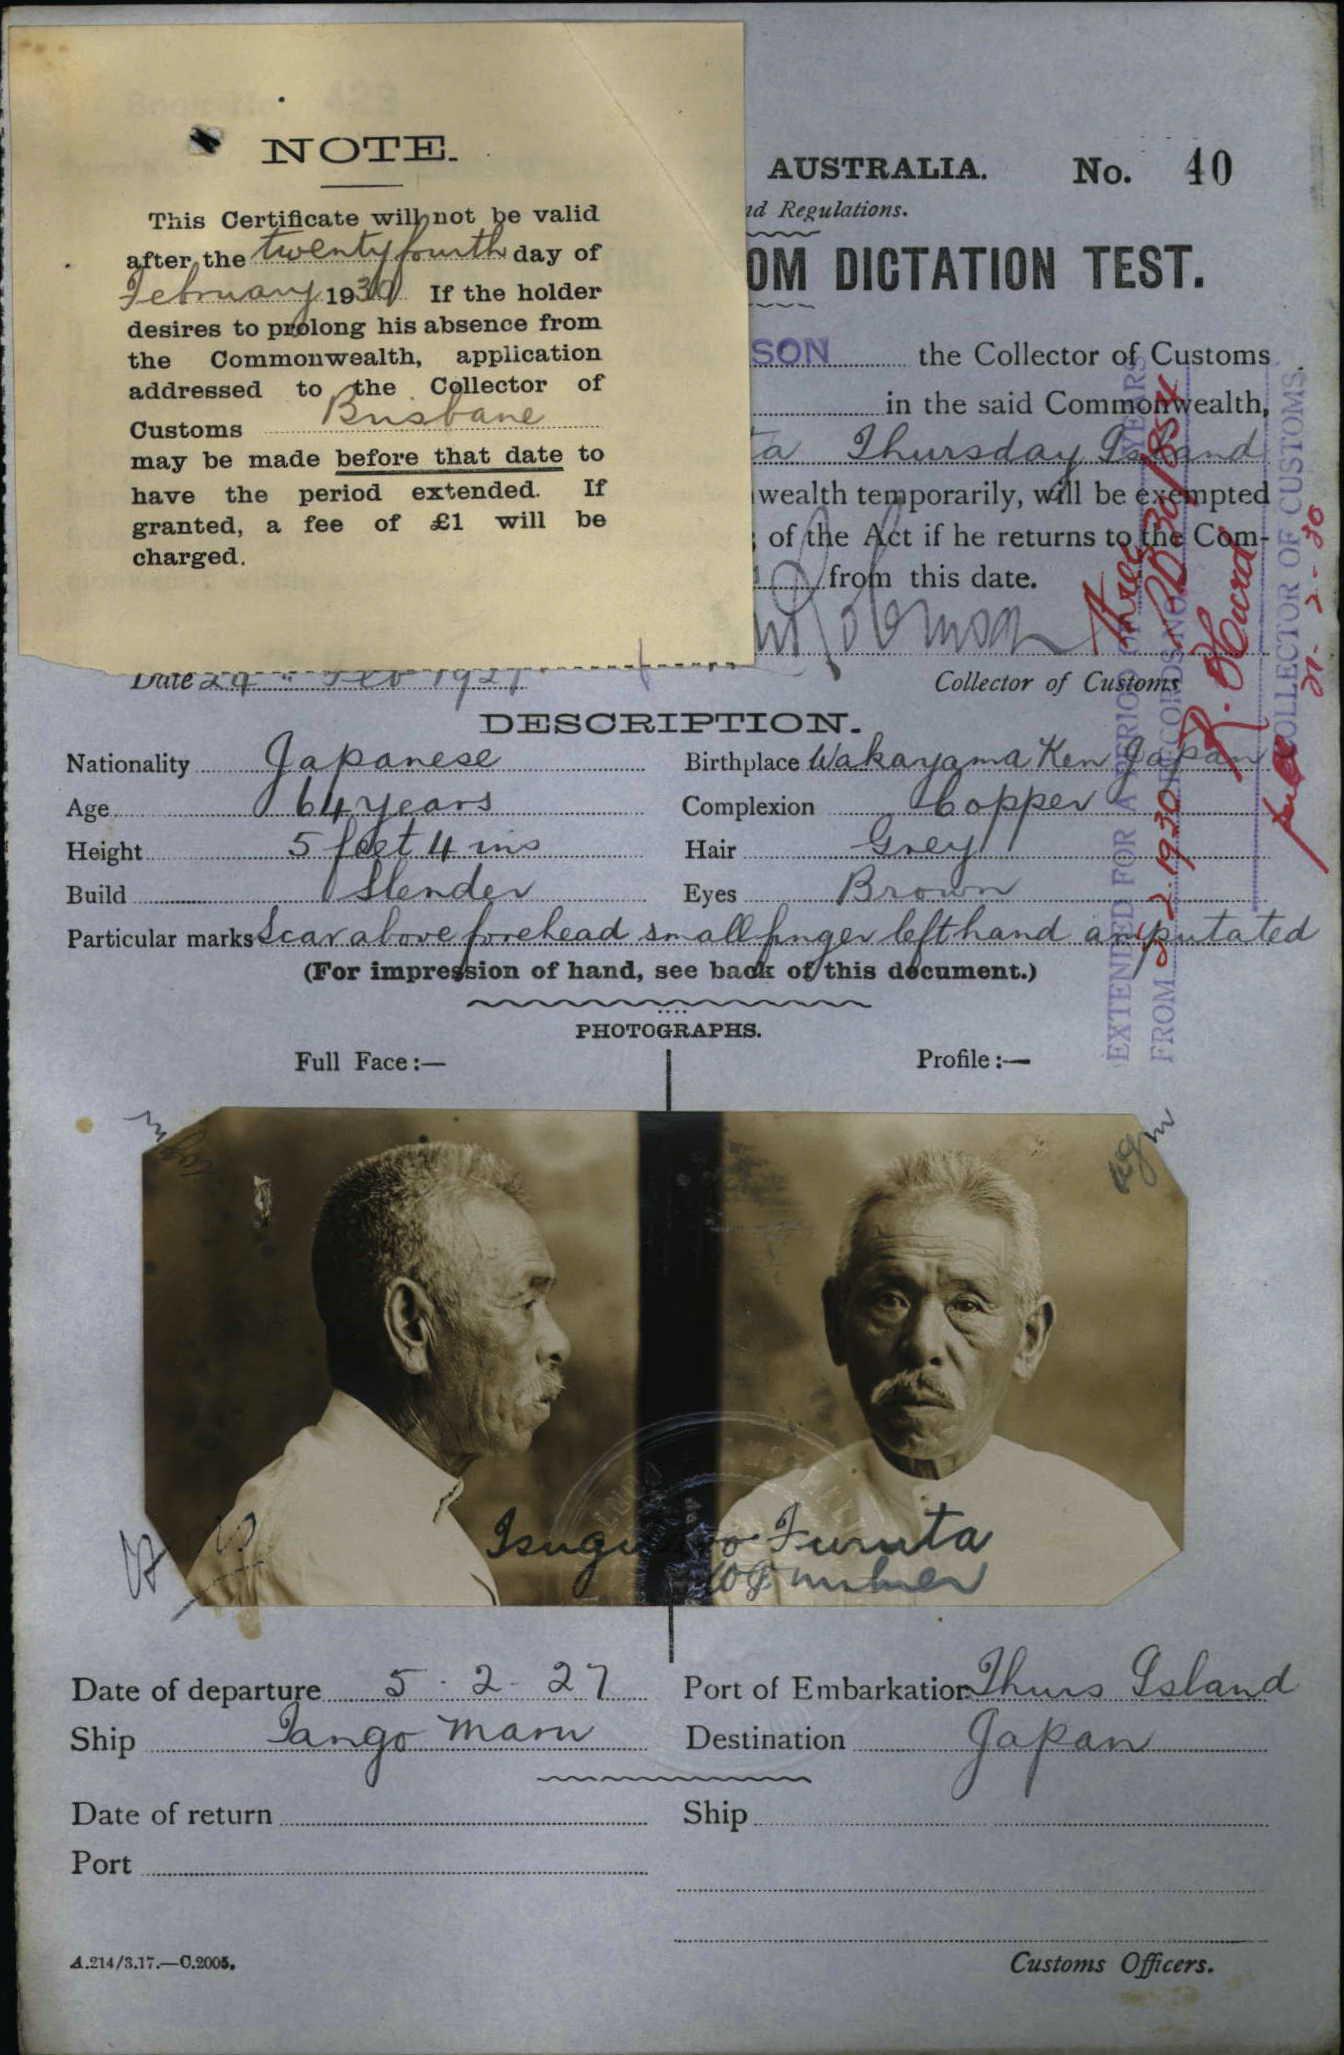 NOTE.
This Certificate will not be valid
after the twenty fourth day of
February 1930 If the holder
desires to prolong his absence from
the Commonwealth, application
addressed to the Collector of
Customs Brisbane
may be made before that date to
have the period extended. If
granted, a fee of £1 will be
charged.
AUSTRALIA. No. 40
nd Regulations.
OM DICTATION TEST.
SON the Collector of Customs
in the said Commonwealth,
ta Thursday Island
wealth temporarily, will be exempted
of the Act if he returns to the Com-
from this date.
Date Feb 1927
Collector of Customs
DESCRIPTION.
Nationality Japanese Birthplace Wakayama Ken Japan
Age 64 years Complexion Copper
Height 5 feet 4 ins Hair Grey
Build Slender Eyes Brown
Particular marks Scar above forehead small finger left hand amputated
(For impression of hand, see back of this document.)
PHOTOGRAPHS.
Full Face:— Profile:—
Furuta
Date of departure 5-2-27 Port of Embarkation Thurs Island
Ship Tango Maru Destination Japan
Date of return Ship
Port
A.214/3.17.—C.2005. Customs Officers.
EXTENDED FOR A PERIOD OF three YEARS
FROM 2.1930 RECORDS NO. 30/1854
COLLECTOR OF CUSTOMS
21-2-30